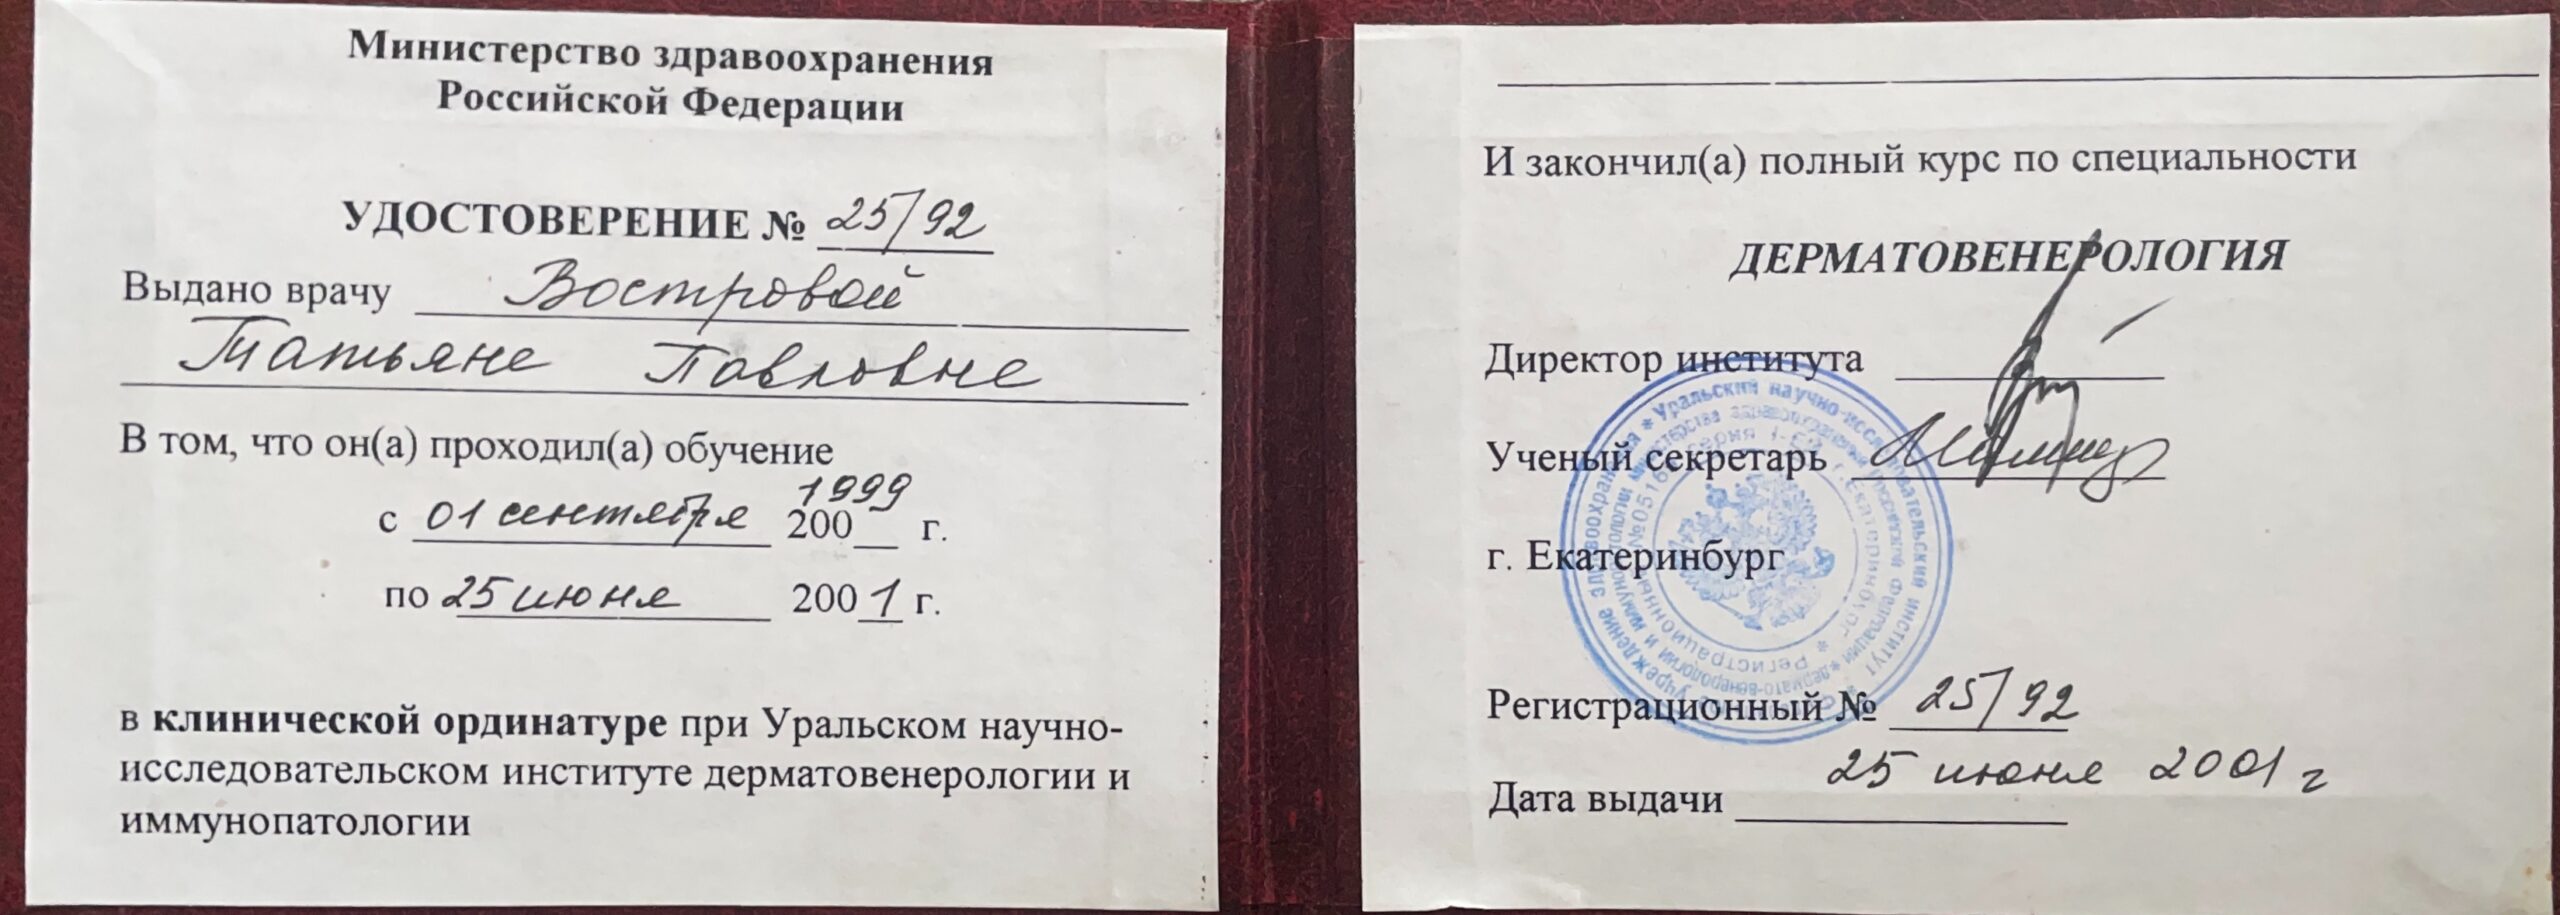 Министерство здравоохранения
Российской Федерации
УДОСТОВЕРЕНИЕ № 25/92
Выдано врачу Востровой
Татьяне Павловне
В том, что он(а) проходил(а) обучение
1999
с 01 сентября 200__ г.
по 25 июня 2001 г.
в клинической ординатуре при Уральском научно-
исследовательском институте дерматовенерологии и
иммунопатологии
И закончил(а) полный курс по специальности
ДЕРМАТОВЕНЕРОЛОГИЯ
Директор института
Ученый секретарь
г. Екатеринбург
Регистрационный № 25/92
Дата выдачи 25 июня 2001 г
Уральский научно-исследовательский институт
дермато-венерологии и иммунопатологии министерства здравоохранения Российской Федерации
г. Екатеринбург * Регистрационный